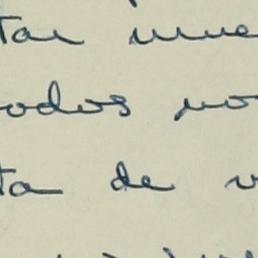 tar nue
odos no
ta de v